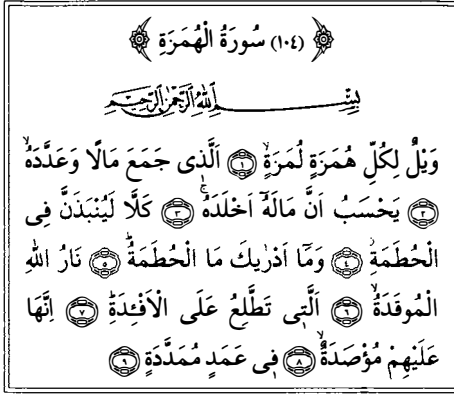 ﴿ (١٠٤) سُورَةُ الْهُمَزَةِ ﴾
بِسْمِ اللّٰهِ الرَّحْمٰنِ الرَّحِيمِ
وَيْلٌ لِكُلِّ هُمَزَةٍ لُمَزَةٍۙ ﴿١﴾ اَلَّذ۪ى جَمَعَ مَالًا وَعَدَّدَهُۙ
﴿٢﴾ يَحْسَبُ اَنَّ مَالَهُٓ اَخْلَدَهُۚ ﴿٣﴾ كَلَّا لَيُنْبَذَنَّ فِى
الْحُطَمَةِۘ ﴿٤﴾ وَمَٓا اَدْرٰيكَ مَا الْحُطَمَةُۜ ﴿٥﴾ نَارُ اللّٰهِ
الْمُوقَدَةُۙ ﴿٦﴾ اَلَّت۪ى تَطَّلِعُ عَلَى الْاَفْـِٔدَةِۜ ﴿٧﴾ اِنَّهَا
عَلَيْهِمْ مُؤْصَدَةٌۙ ﴿٨﴾ ف۪ى عَمَدٍ مُمَدَّدَةٍ ﴿٩﴾